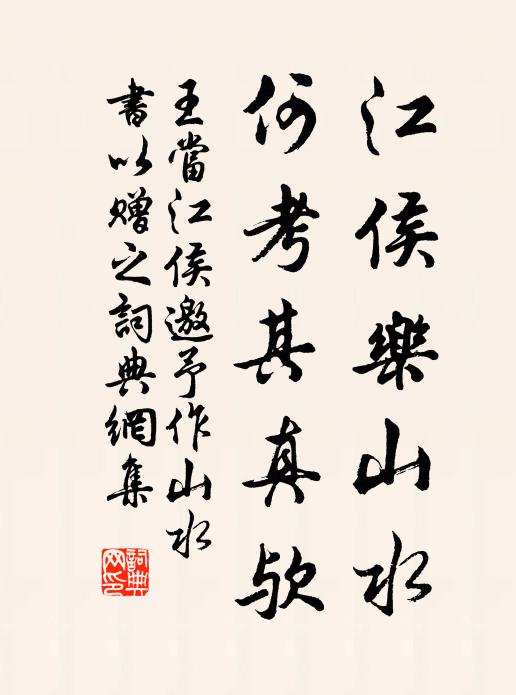 江侯樂山水
何考其真欤
王當江侯邀予作山水
書以贈之詞典網集
詞典
网印